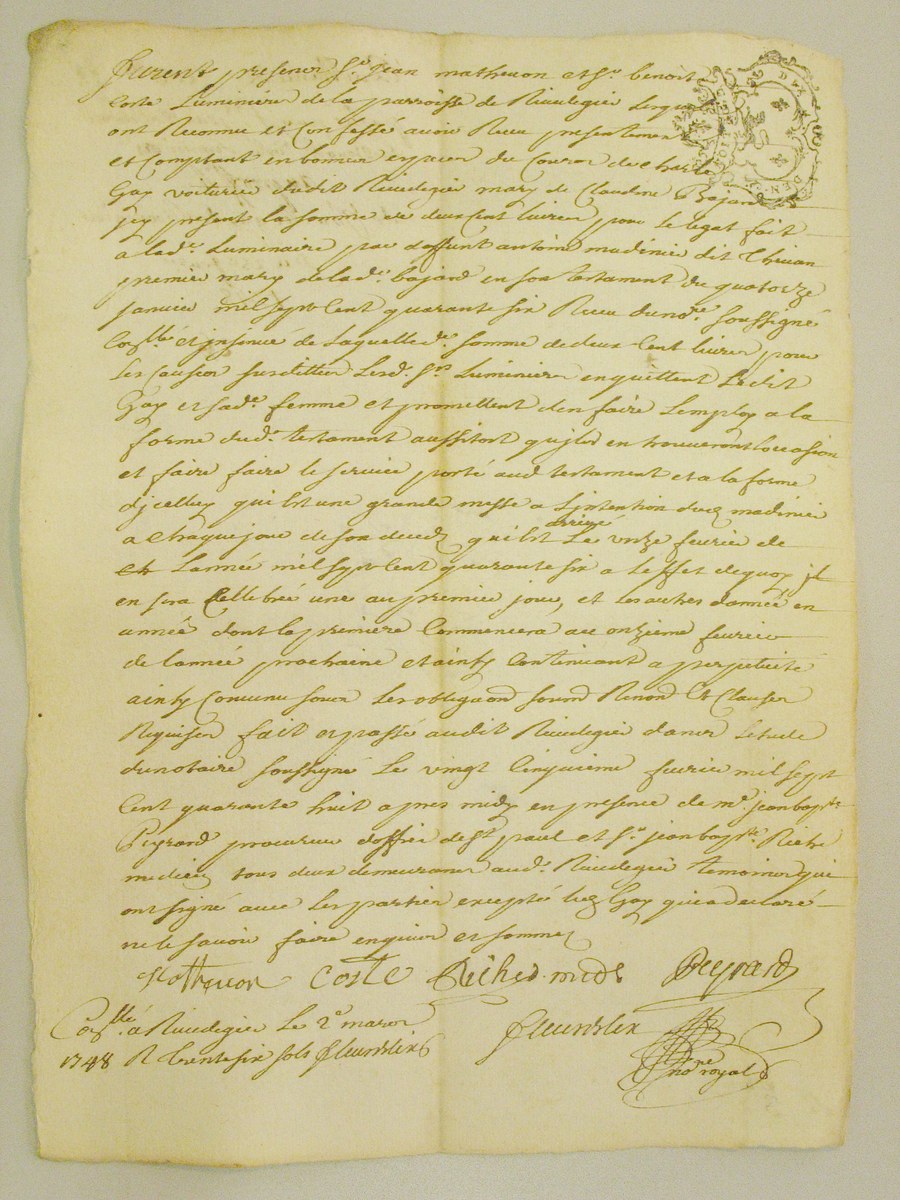 furent presens Sr jean matheuon et Sr benoit
Coste Luminiers de la parroisse de Riuedegier Lesquels
ont Reconnu et Confessé auoir Receu presentement
et Comptant en bonnes especes du Cours de Charle
Gay voiturier dudit Riuedegier mary de Claudine Bajard
jcy present la somme de deux Cent liures pour Le legat fait
a lade Luminaire par deffunt antoine madinier dit
premier mary de lade bajard en son testament du quatorze
januier mil sept Cent quarante six Receu du nore soussigné
Conllé et jnsinué de Laquelle de somme de deux Cent liures pour
Les Causes susdittes Lesd. Srs Luminiers enquittent Ledit
Gay et sade femme et promettent den faire Lemploy a la
forme dud. testament aussitost qujls en trouueront Loccasion
et faire faire le seruice porté aud testament et a la forme
djcelluy qui est une grande messe a Ljntention dud madinier
a Chaque jour de son deced qui est arriué Le onze feurier de
Lannée mil sept Cent quarante six a Leffet dequoy jl
en sera Cellebré une au premier jour, et les autres dannée en
année dont la premiere Commencera au onzieme feurier
de lannée prochaine et ainsy Continuant a perpetuité
ainsy Conuenu sous Les obligeons soum Renons et Clauses
Requises fait et passé audit Riuedegier dans Letude
du notaire soussigné Le vingt Cinquieme feurier mil sept
Cent quarante huit apres midy en presence de me jean bapte
Peyrard procureur doffice de St paul et Sr jean bapte Riche
medecin tous deux demeurans aud. Riuedegier temoins qui
ont signé auec Les parties excepté led Gay qui a declaré
ne le sauoir faire enquis et sommé
Mattheuon Coste Riche d. med. Peyrard
Fleurdelix
nore royal
Conllé a Riuedegier Le 2e mars
1748 R trente six sols fleurdelix